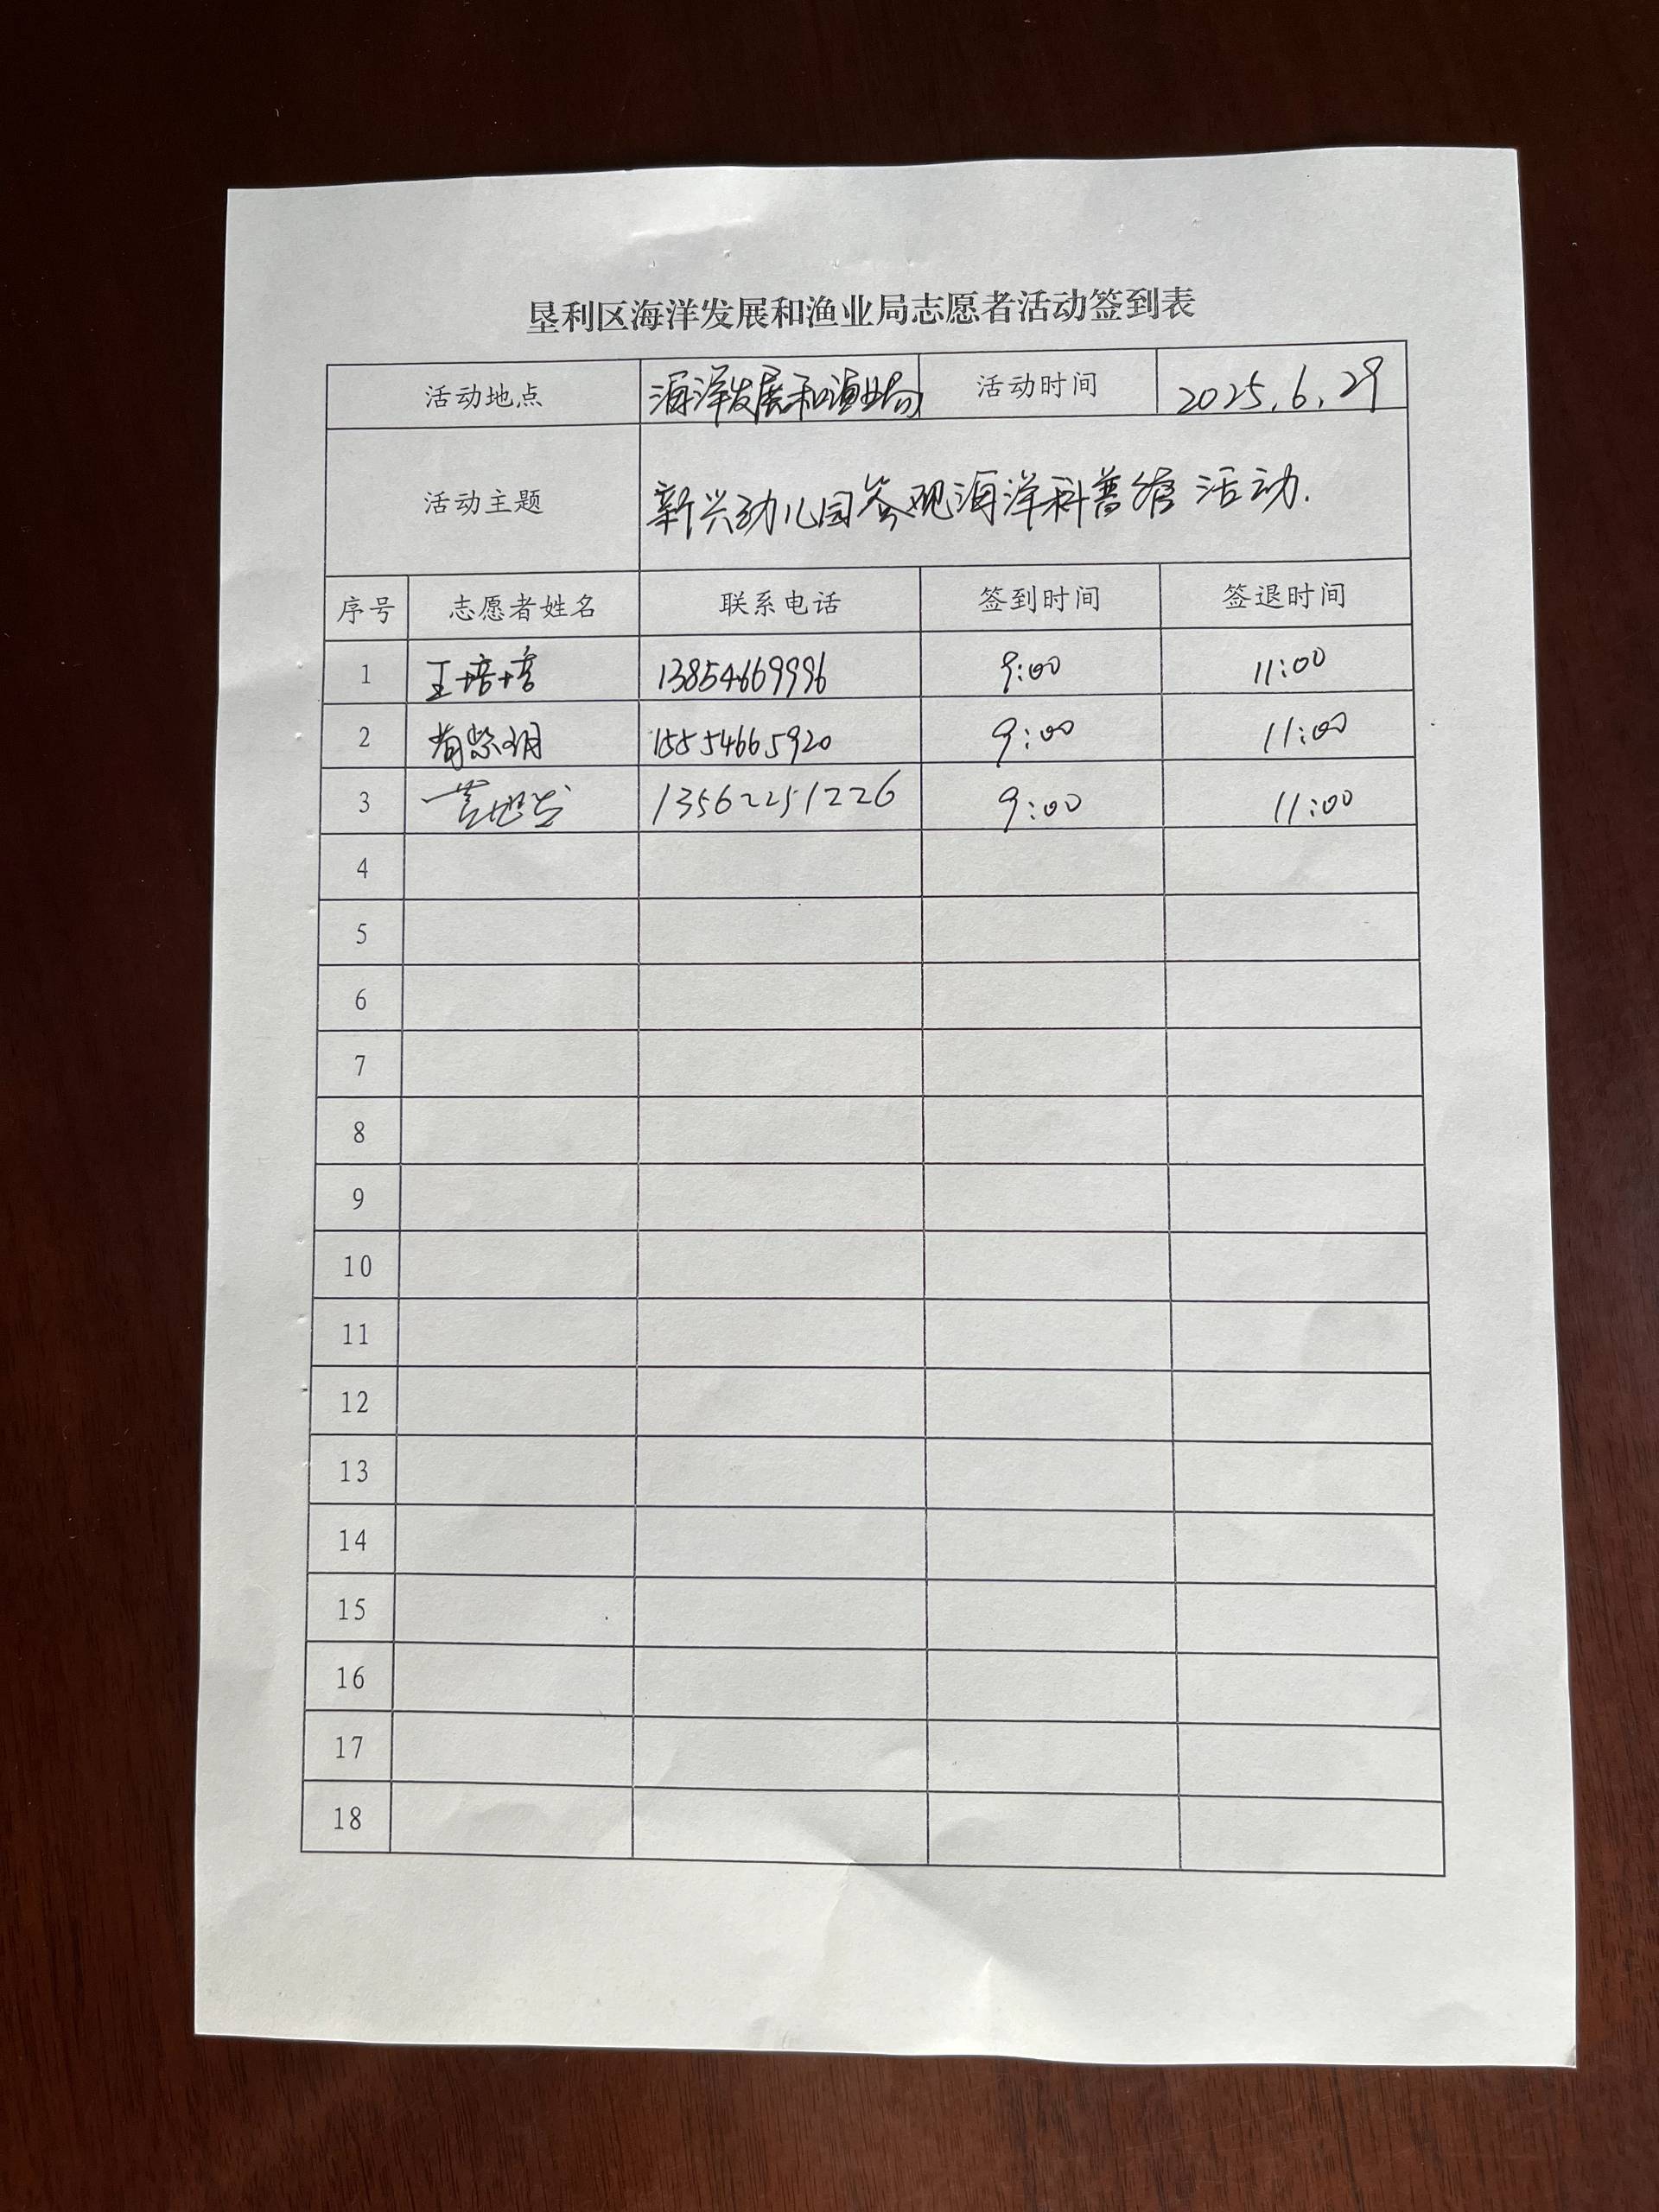 垦利区海洋发展和渔业局志愿者活动签到表
活动地点 海洋发展和渔业局 活动时间 2025.6.29
活动主题 新兴幼儿园参观海洋科普馆活动.
序号 志愿者姓名 联系电话 签到时间 签退时间
1 王培培 13854669996 9:00 11:00
2 15554665920 9:00 11:00
3 13562251226 9:00 11:00
4
5
6
7
8
9
10
11
12
13
14
15
16
17
18